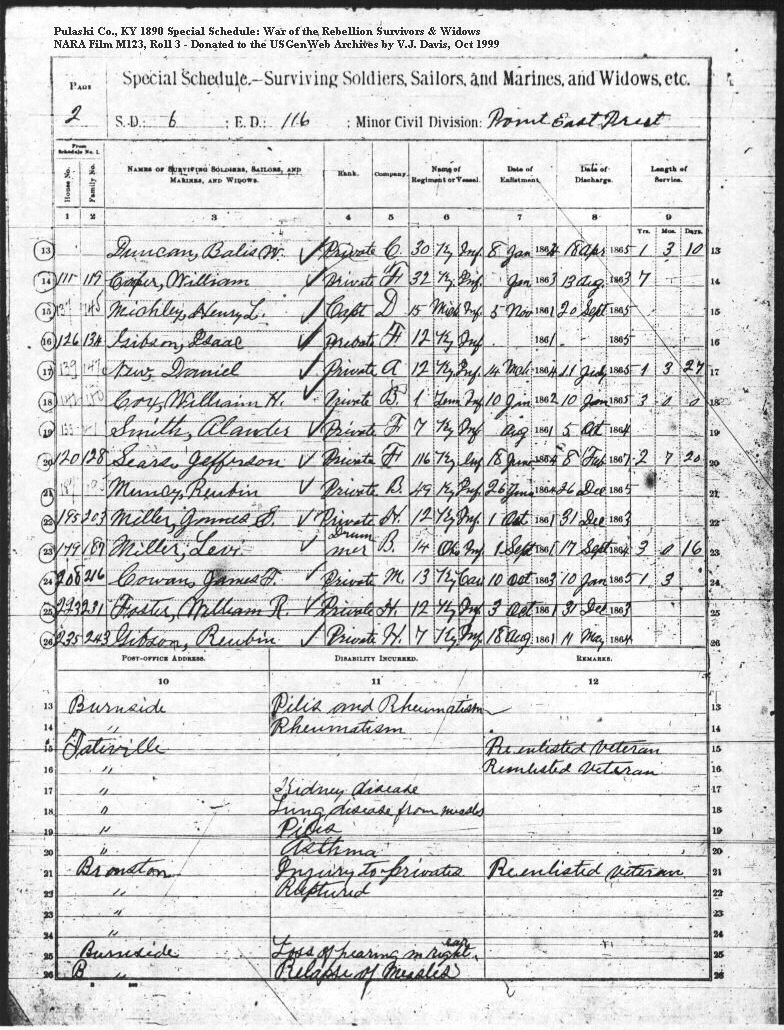 Pulaski Co., KY 1890 Special Schedule: War of the Rebellion Survivors & Widows
NARA Film M123, Roll 3 - Donated to the USGenWeb Archives by V.J. Davis, Oct 1999
Special Schedule.—Surviving Soldiers, Sailors, and Marines, and Widows, etc.
Page
2
S.D.: 6 ; E.D.: 116 ; Minor Civil Division: East
From Schedule No. 1.
House No. Family No. Names of Surviving Soldiers, Sailors, and Marines, and Widows. Rank. Company. Name of Regiment or Vessel. Date of Enlistment. Date of Discharge. Length of Service.
1 2 3 4 5 6 7 8 9
Yrs. Mos. Days.
13 Duncan, Balis W. ✓ Private C. 30 Ky Inf 8 Jan 1864 18 Apr 1865 1 3 10 13
14 111 119 Cooper, William ✓ Private H 32 Ky. Inf. Jan 1863 13 Aug 1863 7 14
15 137 145 Michley, Henry L. ✓ Capt D 15 Mich Inf 5 Nov 1861 20 Sept 1865 15
16 126 134 Gibson, Isaac ✓ Private H 12 Ky Inf 1861 1865 16
17 139 147 New, Daniel ✓ Private A 12 Ky Inf 14 Mch 1864 11 July 1865 1 3 27 17
18 Cox, William H. ✓ Private B 1 Tenn Inf 10 Jan 1862 10 Jan 1865 3 0 0 18
19 Smith, Alander ✓ Private F 7 Ky Inf Aug 1861 5 Oct 1864 19
20 120 128 Sears, Jefferson ✓ Private H 116 Ky Inf 18 June 1864 8 Feb 1867 2 7 20 20
21 Muncy, Reubin ✓ Private B. 49 Ky Inf 26 June 1864 26 Dec 1865 21
22 195 203 Miller, James S. ✓ Private H. 12 Ky Inf 1 Oct 1861 31 Dec 1863 22
23 179 187 Miller, Levi ✓ Drummer B. 14 Oh Inf 1 Sept 1861 17 Sept 1864 3 0 16 23
24 208 216 Cowan, James F. ✓ Private M. 13 Ky Cav 10 Oct 1863 10 Jan 1865 1 3 24
25 223 231 Foster, William R. ✓ Private H. 12 Ky Inf 3 Oct 1861 31 Dec 1863 25
26 235 243 Gibson, Reubin ✓ Private H. 7 Ky Inf. 18 Aug 1861 11 May 1864 26
Post-Office Address. Disability Incurred. Remarks.
10 11 12
13 Burnside Pilis and Rheumatism 13
14 " Rheumatism 14
15 Tativille Reenlisted Veteran 15
16 " Reenlisted Veteran 16
17 " Kidney disease 17
18 " Lung disease from measles 18
19 " Pilis 19
20 " Asthma 20
21 Bronston Injury to privates Reenlisted veteran 21
22 " Ruptured 22
23 " 23
24 " 24
25 Burnside Loss of hearing in right ear. 25
26 B " Relapse of Measlis 26